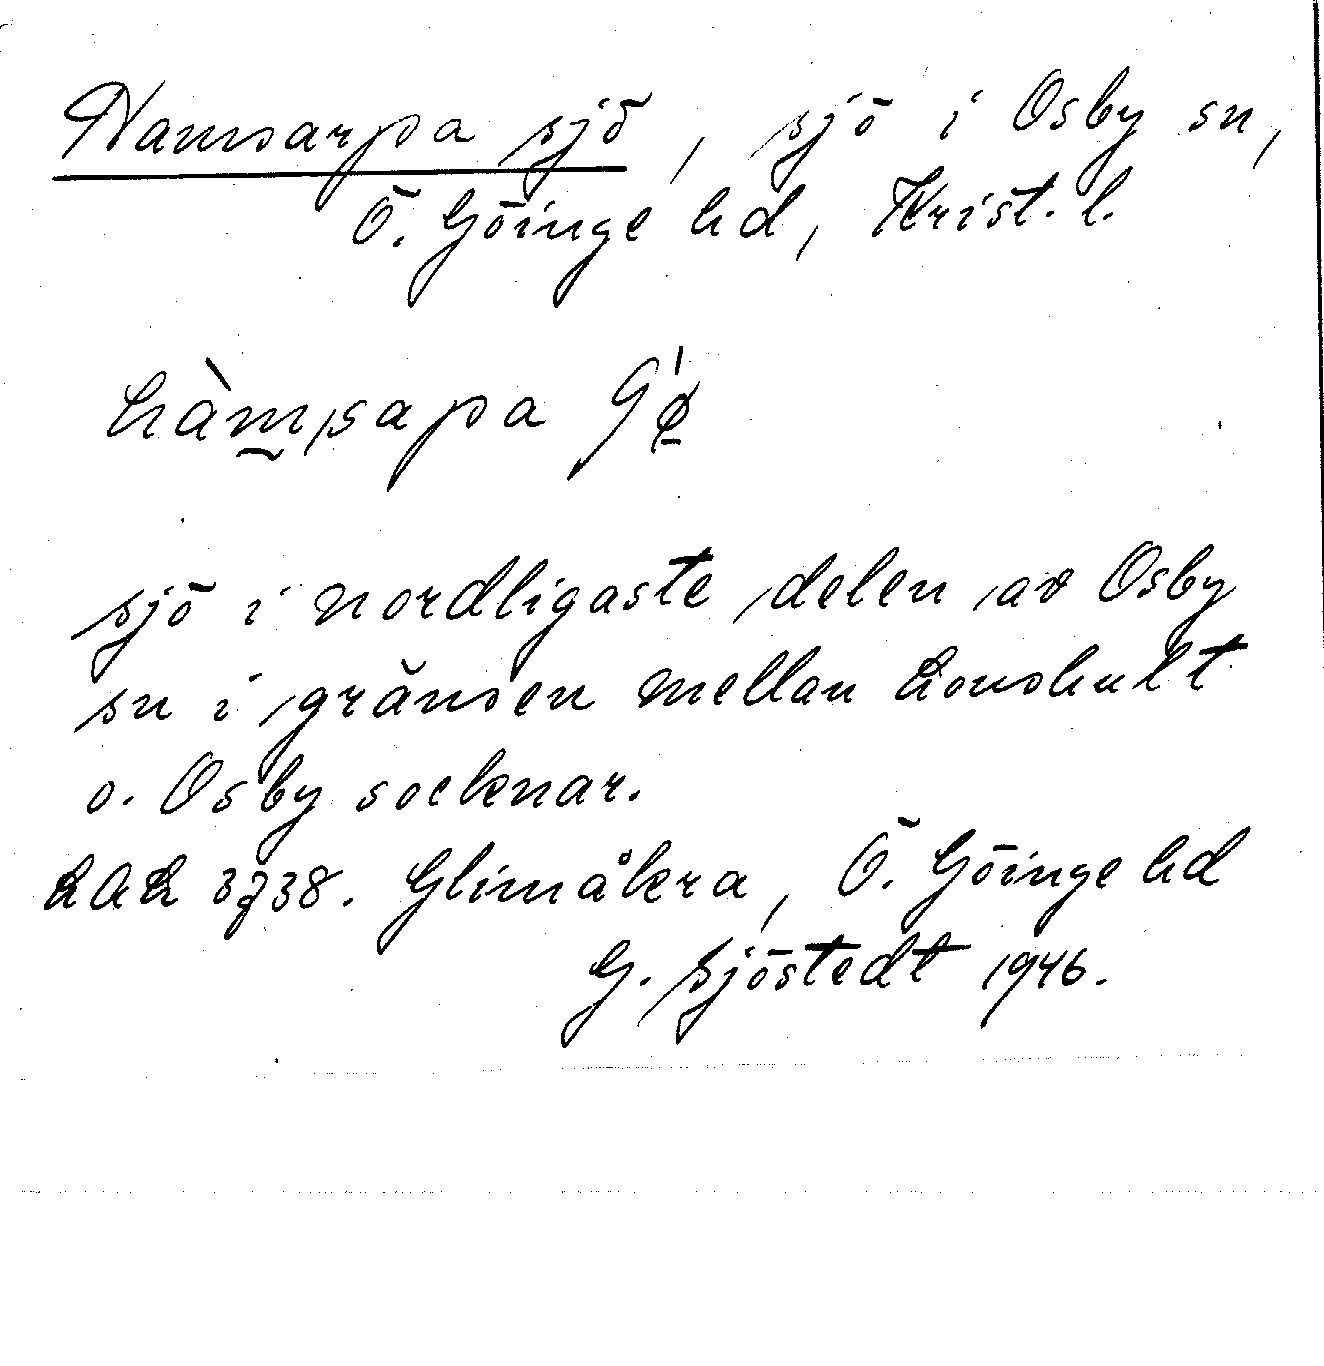 Hamsarpa sjö, sjö i Osby sn,
Ö. Göinge hd, Krist. l.
hàm̰sapa ʃǿ̠
sjö i nordligaste delen av Osby
sn i gränsen mellan Lonshult
o. Osby socknar.
LAL 3738. Glimåkra, Ö. Göinge hd
G. Sjöstedt 1946.